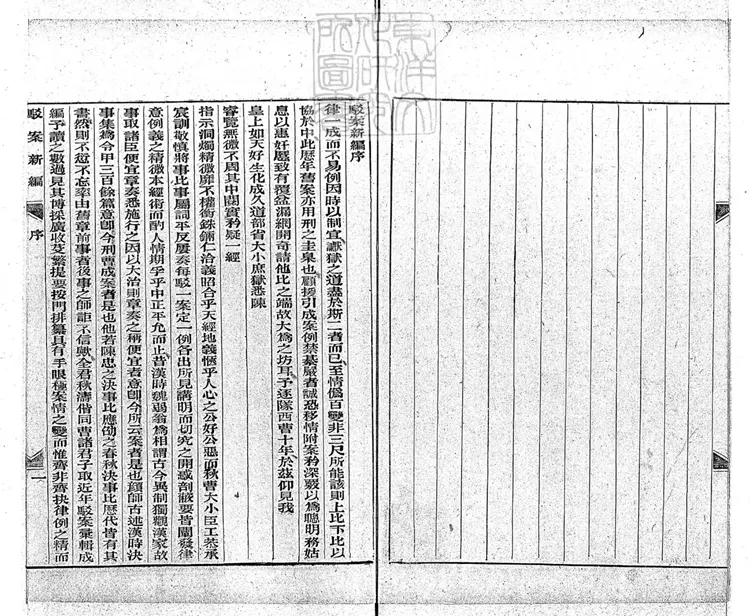 駁案新編序
律一成而不易例因時以制宜讞獄之道盡於斯二者而已至情僞百變非三尺所能該則上比下比以
協於中此歷年舊案亦用刑之圭臬也顧援引成案例禁綦嚴者誠恐移情附案矜深竅以爲聰明務姑
息以惠奸慝致有覆盆漏網開奇請他比之端故大爲之坊耳予逐隊西曹十年於茲仰見我
皇上如天好生化成久道部省大小庶獄悉陳
睿覽無微不周其中關實矜疑一經
指示洞燭精微靡不權衡銖鍿仁洽義昭合乎天經地義愜乎人心之公好公惡而秋曹大小臣工恭承
宸訓敬愼將事比事屬詞平反屢奏每駁一案定一例各出所見講明而切究之開惑剖蔽要皆闡發律
意例義之精微本經術而酌人情期孚乎中正平允而止昔漢時魏弱翁爲相謂古今異制獨觀漢家故
事取諸臣便宜章奏悉施行之因以大治則章奏之稱便宜者意卽今所云案者是也顏師古述漢時決
事集爲令甲三百餘篇意卽今刑曹成案者是也他若陳忠之決事比應劭之春秋決事比歷代皆有其
書然則不愆不忘率由舊章前事者後事之師詎不信歟全君秋濤偕同曹諸君子取近年駁案彙輯成
編予讀之數過見其博採廣收芟繁提要按門排纂具有手眼極案情之變而惟齊非齊抉律例之精而
駁案新編
序
一